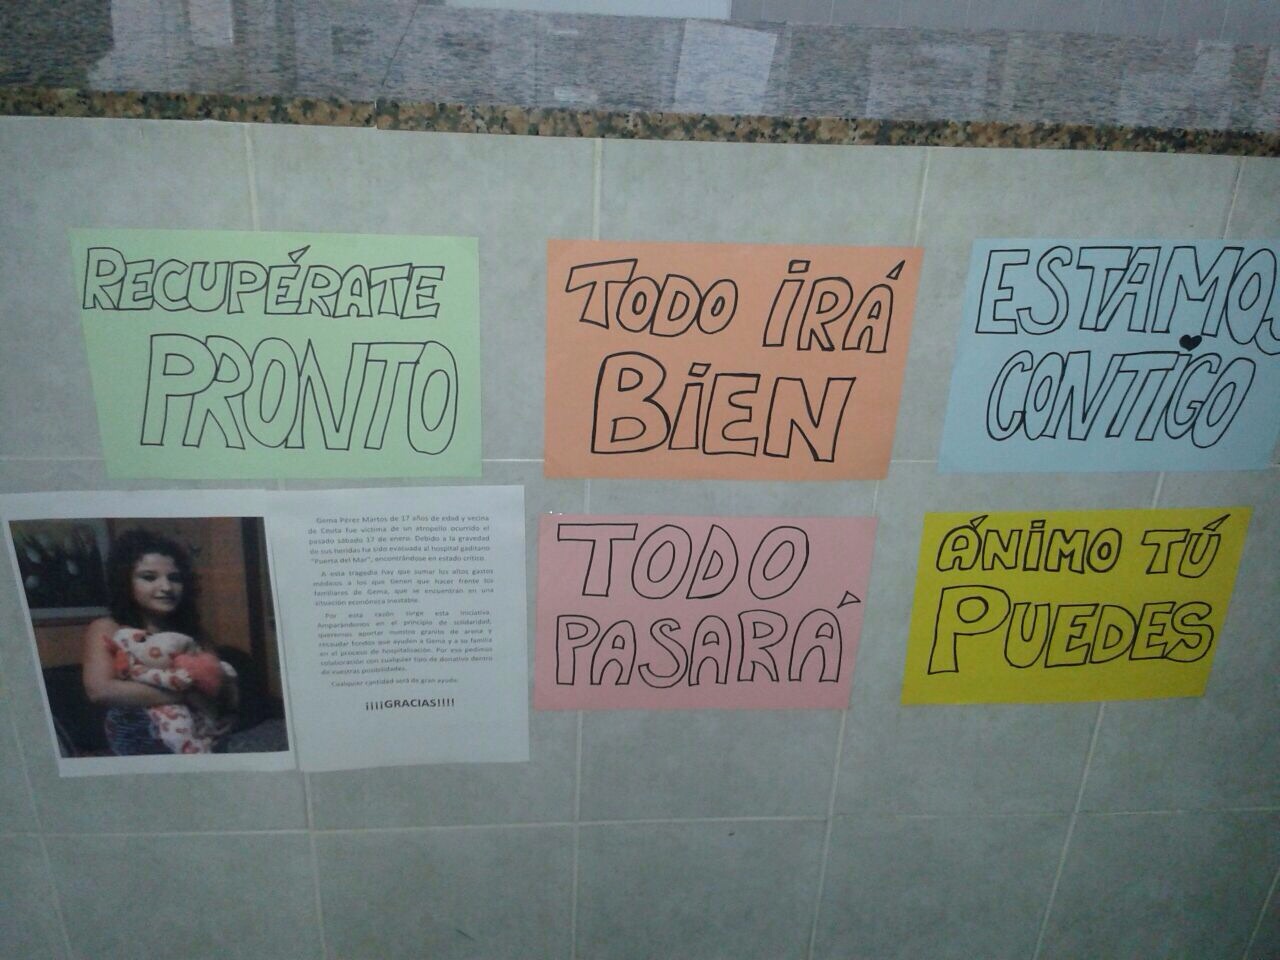 RECUPÉRATE
PRONTO
TODO IRÁ
BIEN
ESTAMOS
CONTIGO
Gema Pérez Martos de 17 años de edad y vecina
de Ceuta fue víctima de un atropello ocurrido el
pasado sábado 17 de enero. Debido a la gravedad
de sus heridas ha sido evacuada al hospital gaditano
"Puerta del Mar", encontrándose en estado crítico.
A esta tragedia hay que sumar los altos gastos
médicos a los que tienen que hacer frente los
familiares de Gema, que se encuentran en una
situación económica inestable.
Por esta razón surge esta iniciativa.
Amparándonos en el principio de solidaridad,
queremos aportar nuestro granito de arena y
recaudar fondos que ayuden a Gema y a su familia
en el proceso de hospitalización. Por eso pedimos
colaboración con cualquier tipo de donativo dentro
de vuestras posibilidades.
Cualquier cantidad será de gran ayuda.
¡¡¡¡GRACIAS!!!!
TODO
PASARÁ
ÁNIMO TÚ
PUEDES